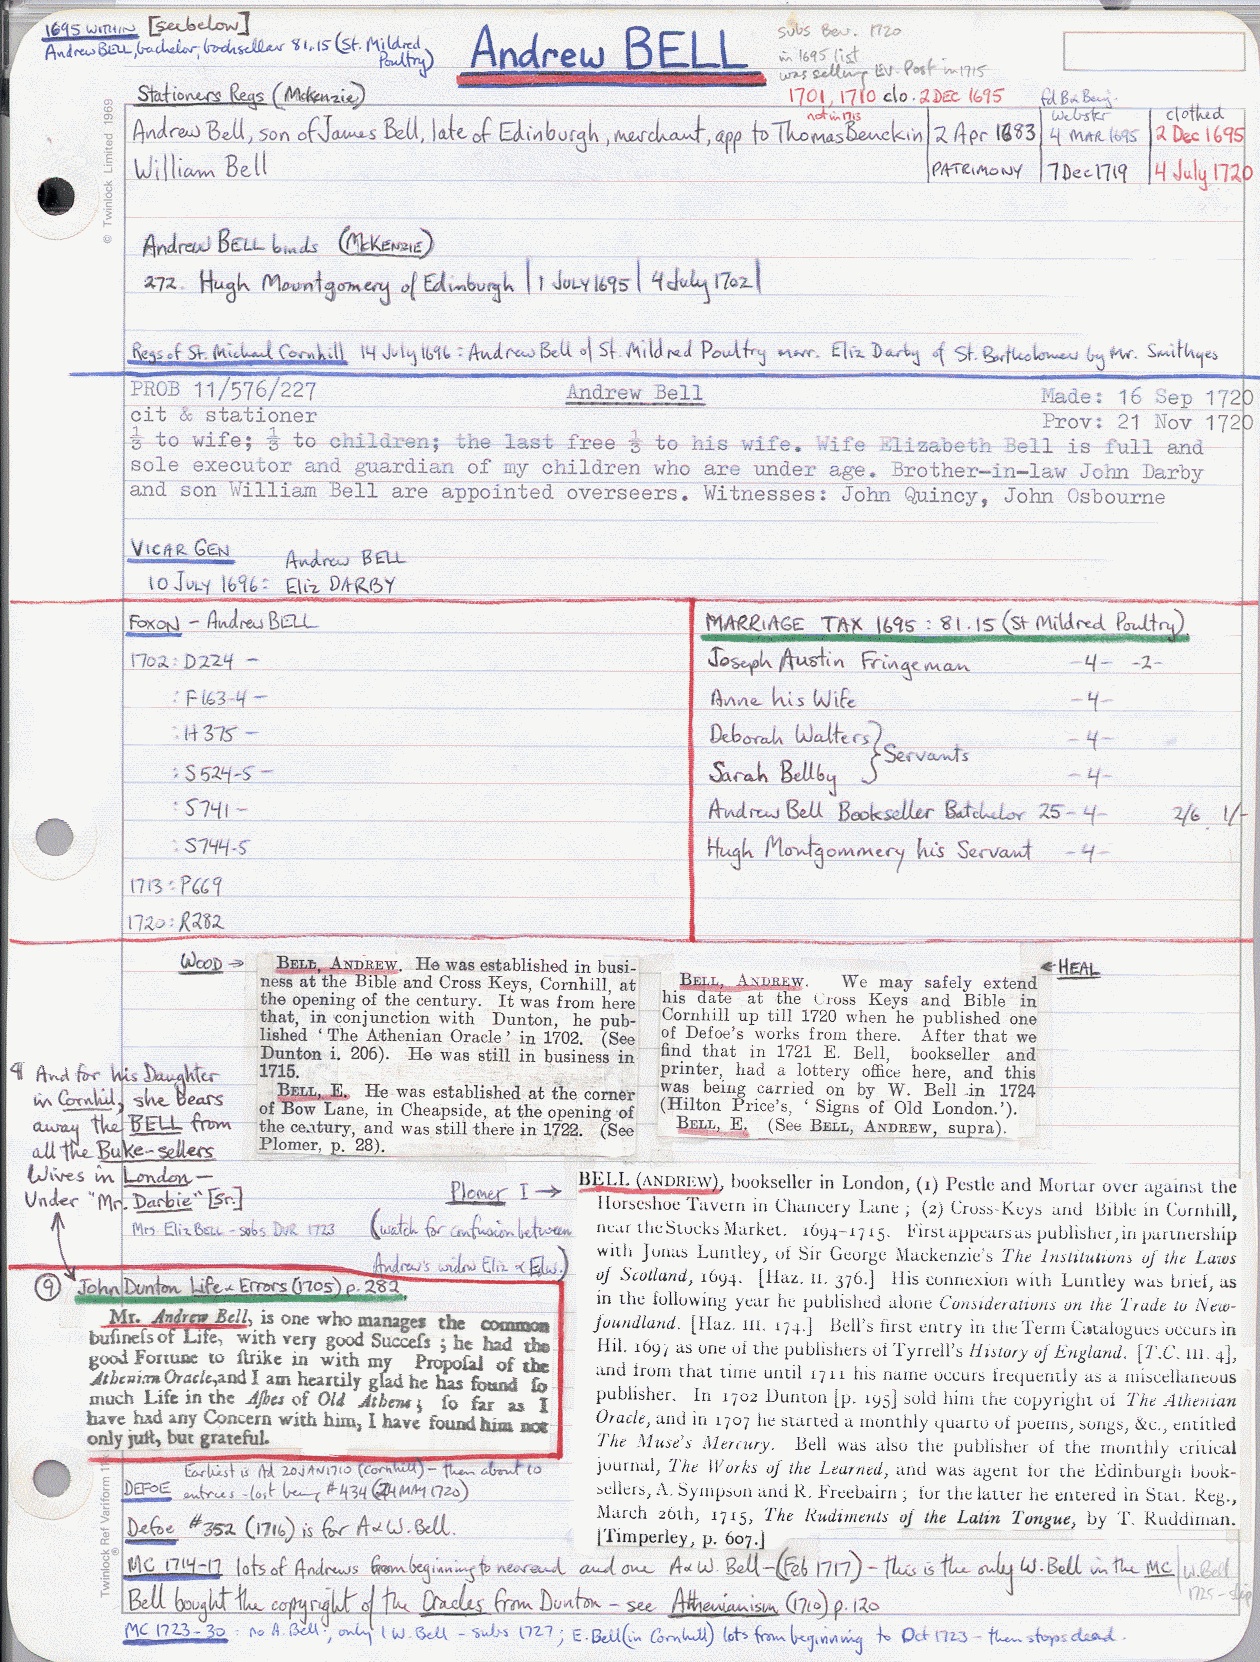 1695 WITHIN [see below]
Andrew BELL, bachelor, bookseller 81.15 (St. Mildred
Poultry)
Andrew BELL
subs Bev. 1720
in 1695 list
was selling Ev. Post in 1715
1701, 1710 clo. 2 DEC 1695
not in 1715
Stationers Regs (McKenzie)
fd B & Being.
Webster
clothed
Andrew Bell, son of James Bell, late of Edinburgh, merchant, app to Thomas Benckin | 2 Apr 1683 | 4 MAR 1695 | 2 Dec 1695
William Bell | PATRIMONY | 7 Dec 1719 | 4 July 1720
© Twinlock Limited 1969
Andrew BELL binds (McKENZIE)
272. Hugh Mountgomery of Edinburgh | 1 JULY 1695 | 4 July 1702 |
Regs of St. Michael Cornhill 14 July 1696 : Andrew Bell of St. Mildred Poultry marr. Eliz Darby of St. Bartholomew by Mr. Smithyes
PROB 11/576/227 Andrew Bell Made: 16 Sep 1720
cit & stationer Prov: 21 Nov 1720
⅓ to wife; ⅓ to children; the last free ⅓ to his wife. Wife Elizabeth Bell is full and
sole executor and guardian of my children who are under age. Brother-in-law John Darby
and son William Bell are appointed overseers. Witnesses: John Quincy, John Osbourne
VICAR GEN
Andrew BELL
10 JULY 1696: Eliz DARBY
FOXON - Andrew BELL
1702: D224 -
: F163-4 -
: H375 -
: S524-5 -
: S741 -
: S744-5
1713: P669
1720: R282
MARRIAGE TAX 1695 : 81.15 (St Mildred Poultry)
Joseph Austin Fringeman -4- -2-
Anne his Wife -4-
Deborah Walters } Servants -4-
Sarah Bellby -4-
Andrew Bell Bookseller Batchelor 25 -4- 2/6 1/-
Hugh Montgommery his Servant -4-
WOOD →
BELL, ANDREW. He was established in busi-
ness at the Bible and Cross Keys, Cornhill, at
the opening of the century. It was from here
that, in conjunction with Dunton, he pub-
lished 'The Athenian Oracle' in 1702. (See
Dunton i. 206). He was still in business in
1715.
BELL, E. He was established at the corner
of Bow Lane, in Cheapside, at the opening of
the century, and was still there in 1722. (See
Plomer, p. 28).
← HEAL
BELL, ANDREW. We may safely extend
his date at the Cross Keys and Bible in
Cornhill up till 1720 when he published one
of Defoe's works from there. After that we
find that in 1721 E. Bell, bookseller and
printer, had a lottery office here, and this
was being carried on by W. Bell in 1724
(Hilton Price's, 'Signs of Old London.').
BELL, E. (See BELL, ANDREW, supra).
¶ And for his Daughter
in Cornhil, she bears
away the BELL from
all the Buke-sellers
Wives in London —
Under "Mr. Darbie" [Sr.]
Mrs. Eliz BELL - subs DUR 1723
(watch for confusion between
Andrew's widow Eliz & Edw.)
Plomer I →
BELL (ANDREW), bookseller in London, (1) Pestle and Mortar over against the
Horseshoe Tavern in Chancery Lane; (2) Cross-Keys and Bible in Cornhill,
near the Stocks Market. 1694–1715. First appears as publisher, in partnership
with Jonas Luntley, of Sir George Mackenzie's The Institutions of the Laws
of Scotland, 1694. [Haz. II. 376.] His connexion with Luntley was brief, as
in the following year he published alone Considerations on the Trade to New-
foundland. [Haz. III. 174.] Bell's first entry in the Term Catalogues occurs in
Hil. 1697 as one of the publishers of Tyrrell's History of England. [T.C. III. 4],
and from that time until 1711 his name occurs frequently as a miscellaneous
publisher. In 1702 Dunton [p. 195] sold him the copyright of The Athenian
Oracle, and in 1707 he started a monthly quarto of poems, songs, &c., entitled
The Muse's Mercury. Bell was also the publisher of the monthly critical
journal, The Works of the Learned, and was agent for the Edinburgh book-
sellers, A. Sympson and R. Freebairn; for the latter he entered in Stat. Reg.,
March 26th, 1715, The Rudiments of the Latin Tongue, by T. Ruddiman.
[Timperley, p. 607.]
⑨ John Dunton Life & Errors (1705) p. 282
Mr. Andrew Bell, is one who manages the common
businefs of Life, with very good Succefs; he had the
good Fortune to ftrike in with my Propofal of the
Athenian Oracle, and I am heartily glad he has found fo
much Life in the Afhes of Old Athens; fo far as I
have had any Concern with him, I have found him not
only juft, but grateful.
Twinlock Ref Variform
DEFOE Earliest is Ad 20 JAN 1710 (Cornhill) - then about 10
entries - last being #434 (24 MAY 1720)
Defoe #352 (1716) is for A & W. Bell.
MC 1714-17 lots of Andrews from beginning to near end and one A & W. Bell - (Feb 1717) - this is the only W. Bell in the MC | W. Bell
1725 -
Bell bought the copyright of the Oracles from Dunton - see Athenianism (1710) p. 120
MC 1723-30 : no A. Bell; only 1 W. Bell - subs 1727; E. Bell (in Cornhill) lots from beginning to Oct 1723 - then stops dead.